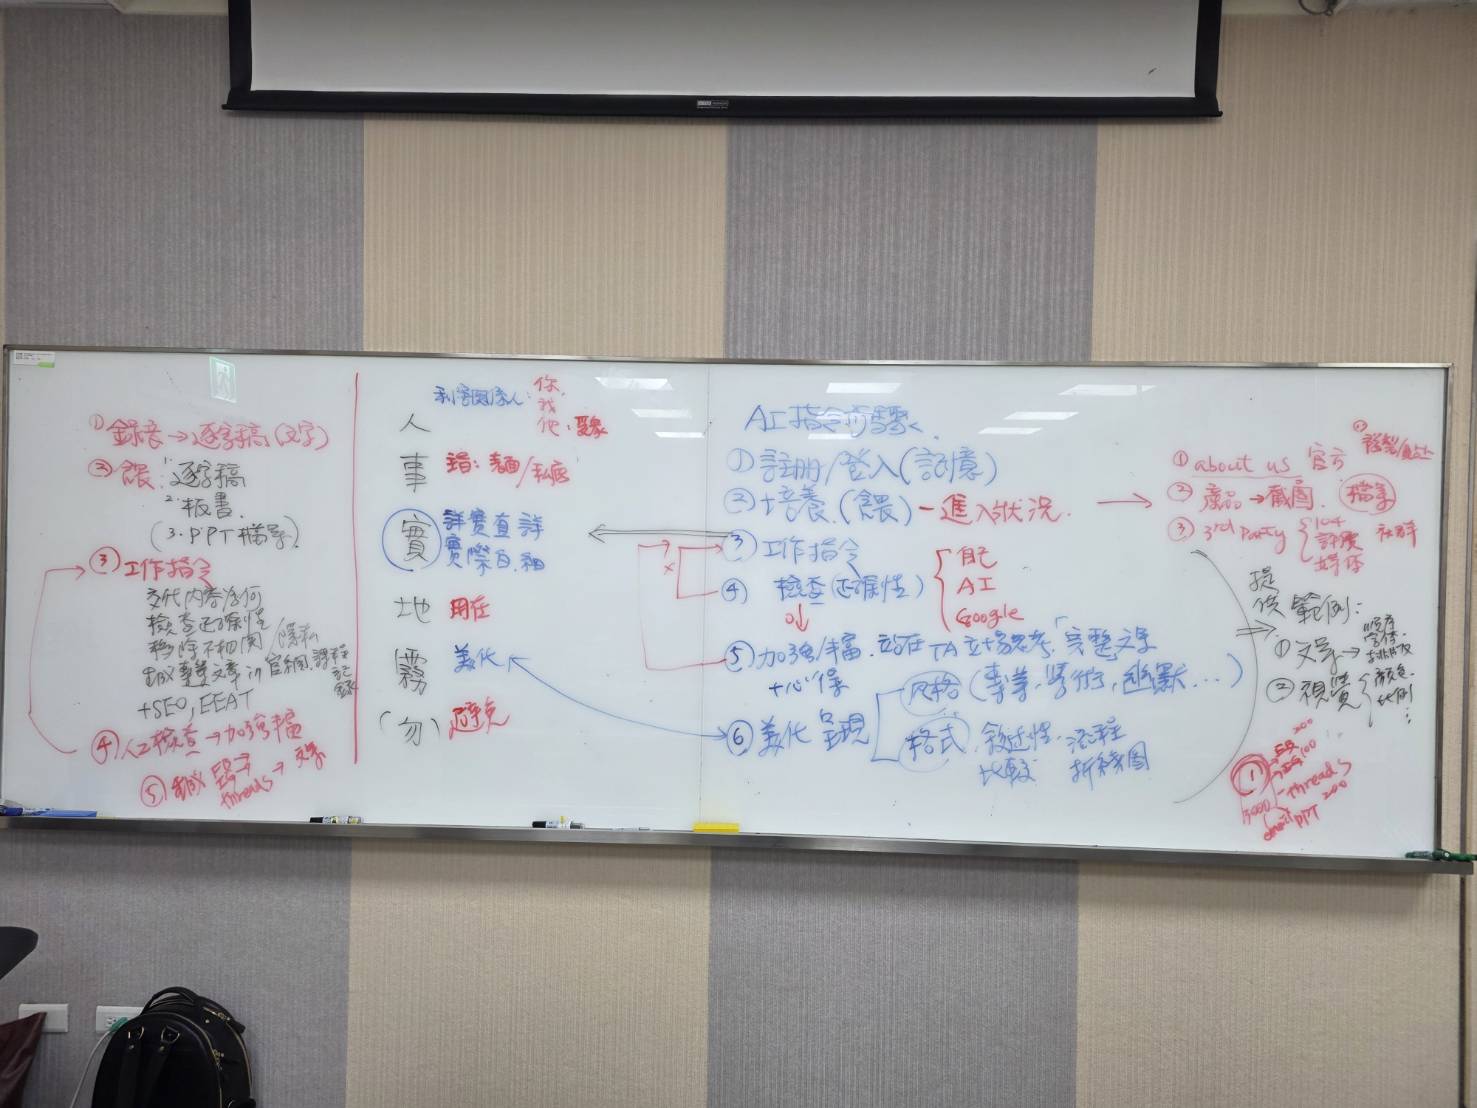 ① 錄音→逐字稿(文字)
② 餵:1.逐字稿
2.板書
(3.PPT檔案)
③ 工作指令
交代內容為何
檢查正確性
移除不相關/隱私
專業文章 in 官網,課程記錄
+SEO, EEAT
④ 人工檢查→加強豐富
⑤
threads
→文案
利害關係人:你,
我
他,
人
事
實
地
霧
(勿)
詳實
實際
用在
美化
避免
AI指令步驟
① 註冊/登入(記憶)
② 培養(餵)-進入狀況
③ 工作指令
④ 檢查(正確性)
自己
AI
Google
⑤ 加強/豐富.站在TA立場思考「完整文字
⑥ 美化呈現
風格(專業,學術,幽默...)
格式.敘述性.流程
比較 折線圖
① about us 官方
② 產品→截圖. 檔案
③ 3rd Party
104
評價
媒體
社群
提供範例:
① 文字→
② 視覺
顏色.
比例
...
①
3000
200
100
-threads
email PPT 200